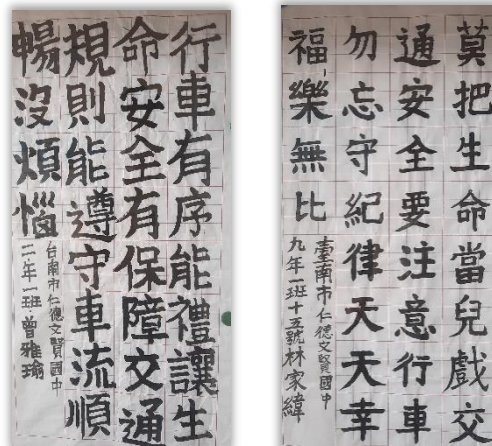 行車有序能禮讓生
命安全有保障交通
規則能遵守車流順
暢沒煩惱
台南市仁德文賢國中
二年一班曾雅瑜
莫把生命當兒戲交
通安全要注意行車
勿忘守紀律天天幸
福樂無比
臺南市仁德文賢國中
九年一班十五號林家緯